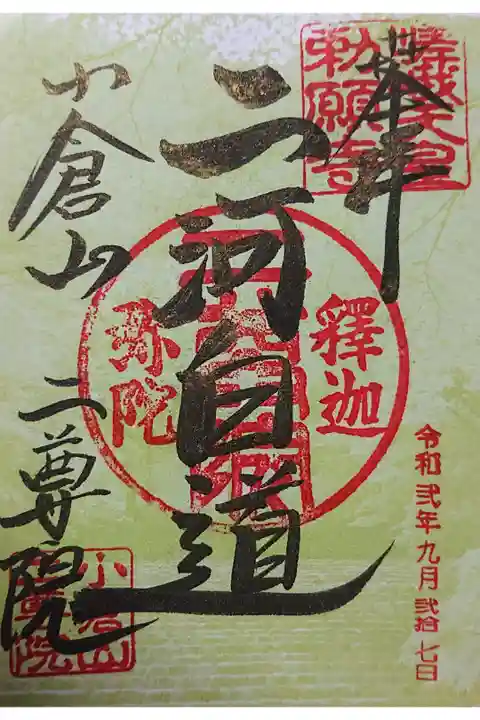 奉拝
嵯峨天皇
勅願寺
二河白道
釋迦
弥陀
小倉山 二尊院
小倉山
二尊院
令和弐年九月弐拾七日